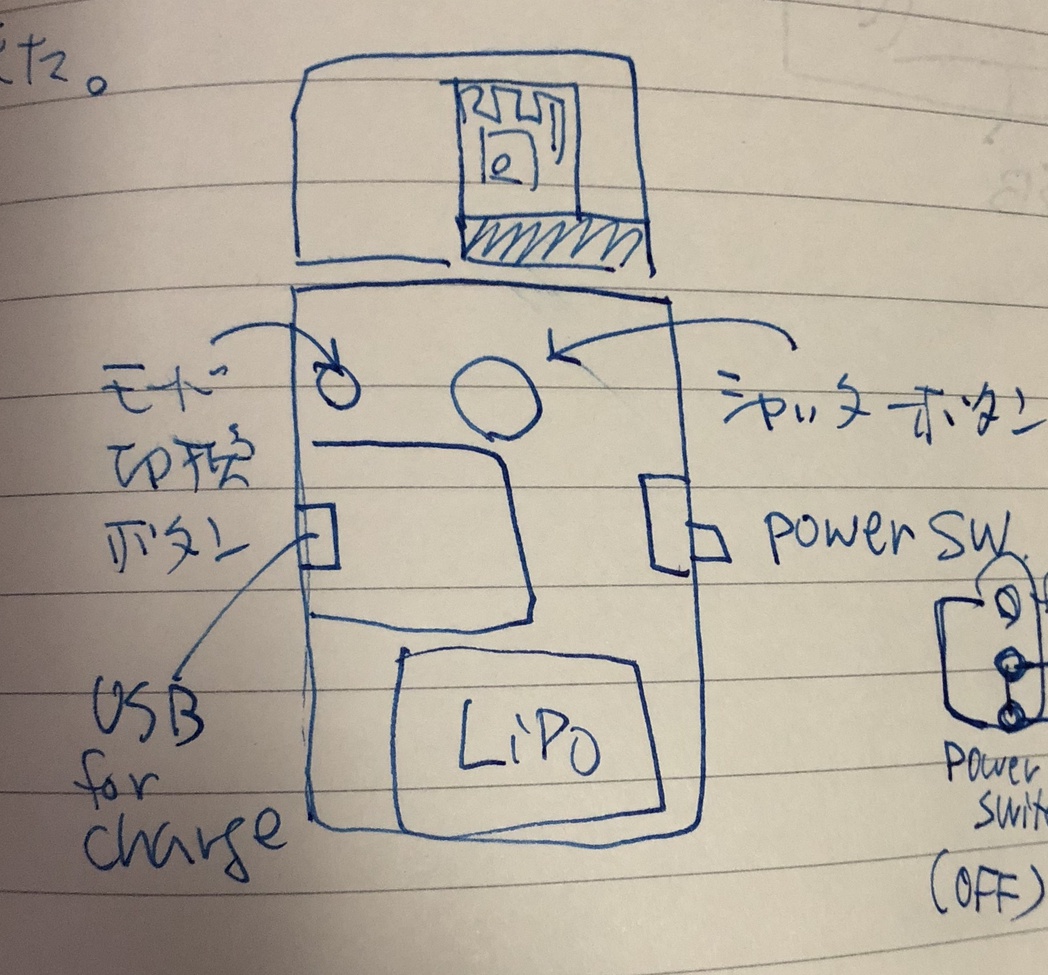 た。
モード
切換
ボタン
シャッターボタン
power SW.
LiPo
USB
for
charge
power
swit
(OFF)